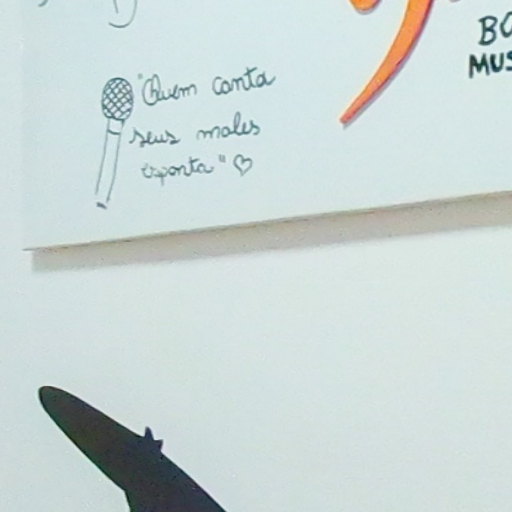 "Quem canta
seus males
espanta" ♡
BO
MUS